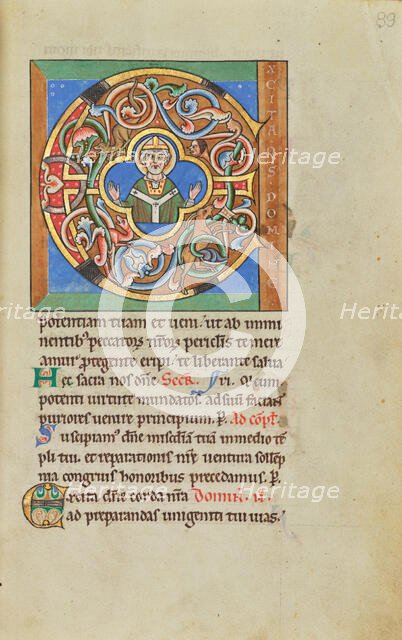 89
XCITA QS DOMIN
potentiam tuam et veni. ut ab immi
nentibus peccatorum nrorum periculis te mere
amur protegente eripi. te liberante salva
Hec sacra nos dne Secr. ri. ps. cum
potenti virtute mundatos ad suum faciat
puriores venire principium. P. Ad copl.
Suscipiamus dne miscdiam tuam in medio te
pli tui. et reparationis nre ventura sollep
nia congruis honoribus precedamus. P.
Excita dne corda nra Domin. ii.
ad preparandas unigeniti tui vias.
Heritage
Images